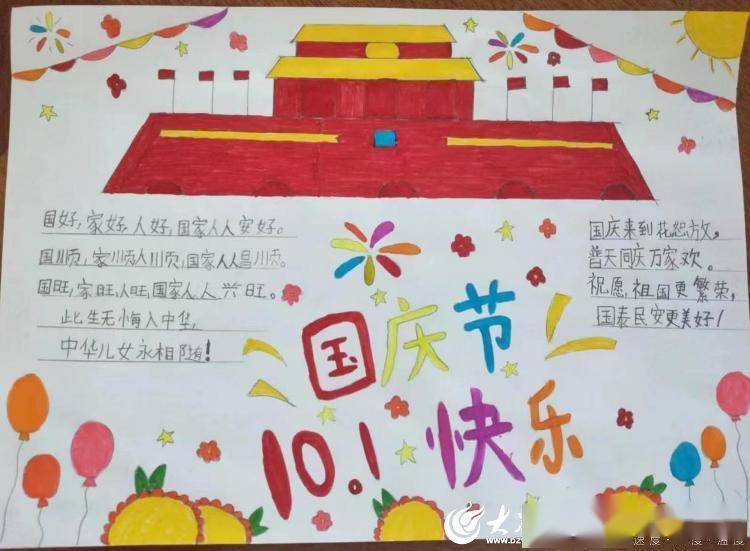 国好,家好,人好,国家人人安好。
国顺,家顺,人顺,国家人人昌顺。
国旺,家旺,人旺,国家人人兴旺。
此生无悔入中华,
中华儿女永相随!
国庆来到花织放,
普天同庆万家欢。
祝愿祖国更繁荣,
国泰民安更美好!
国庆节
10.1 快乐
大
www.dz
速度·
度·温度